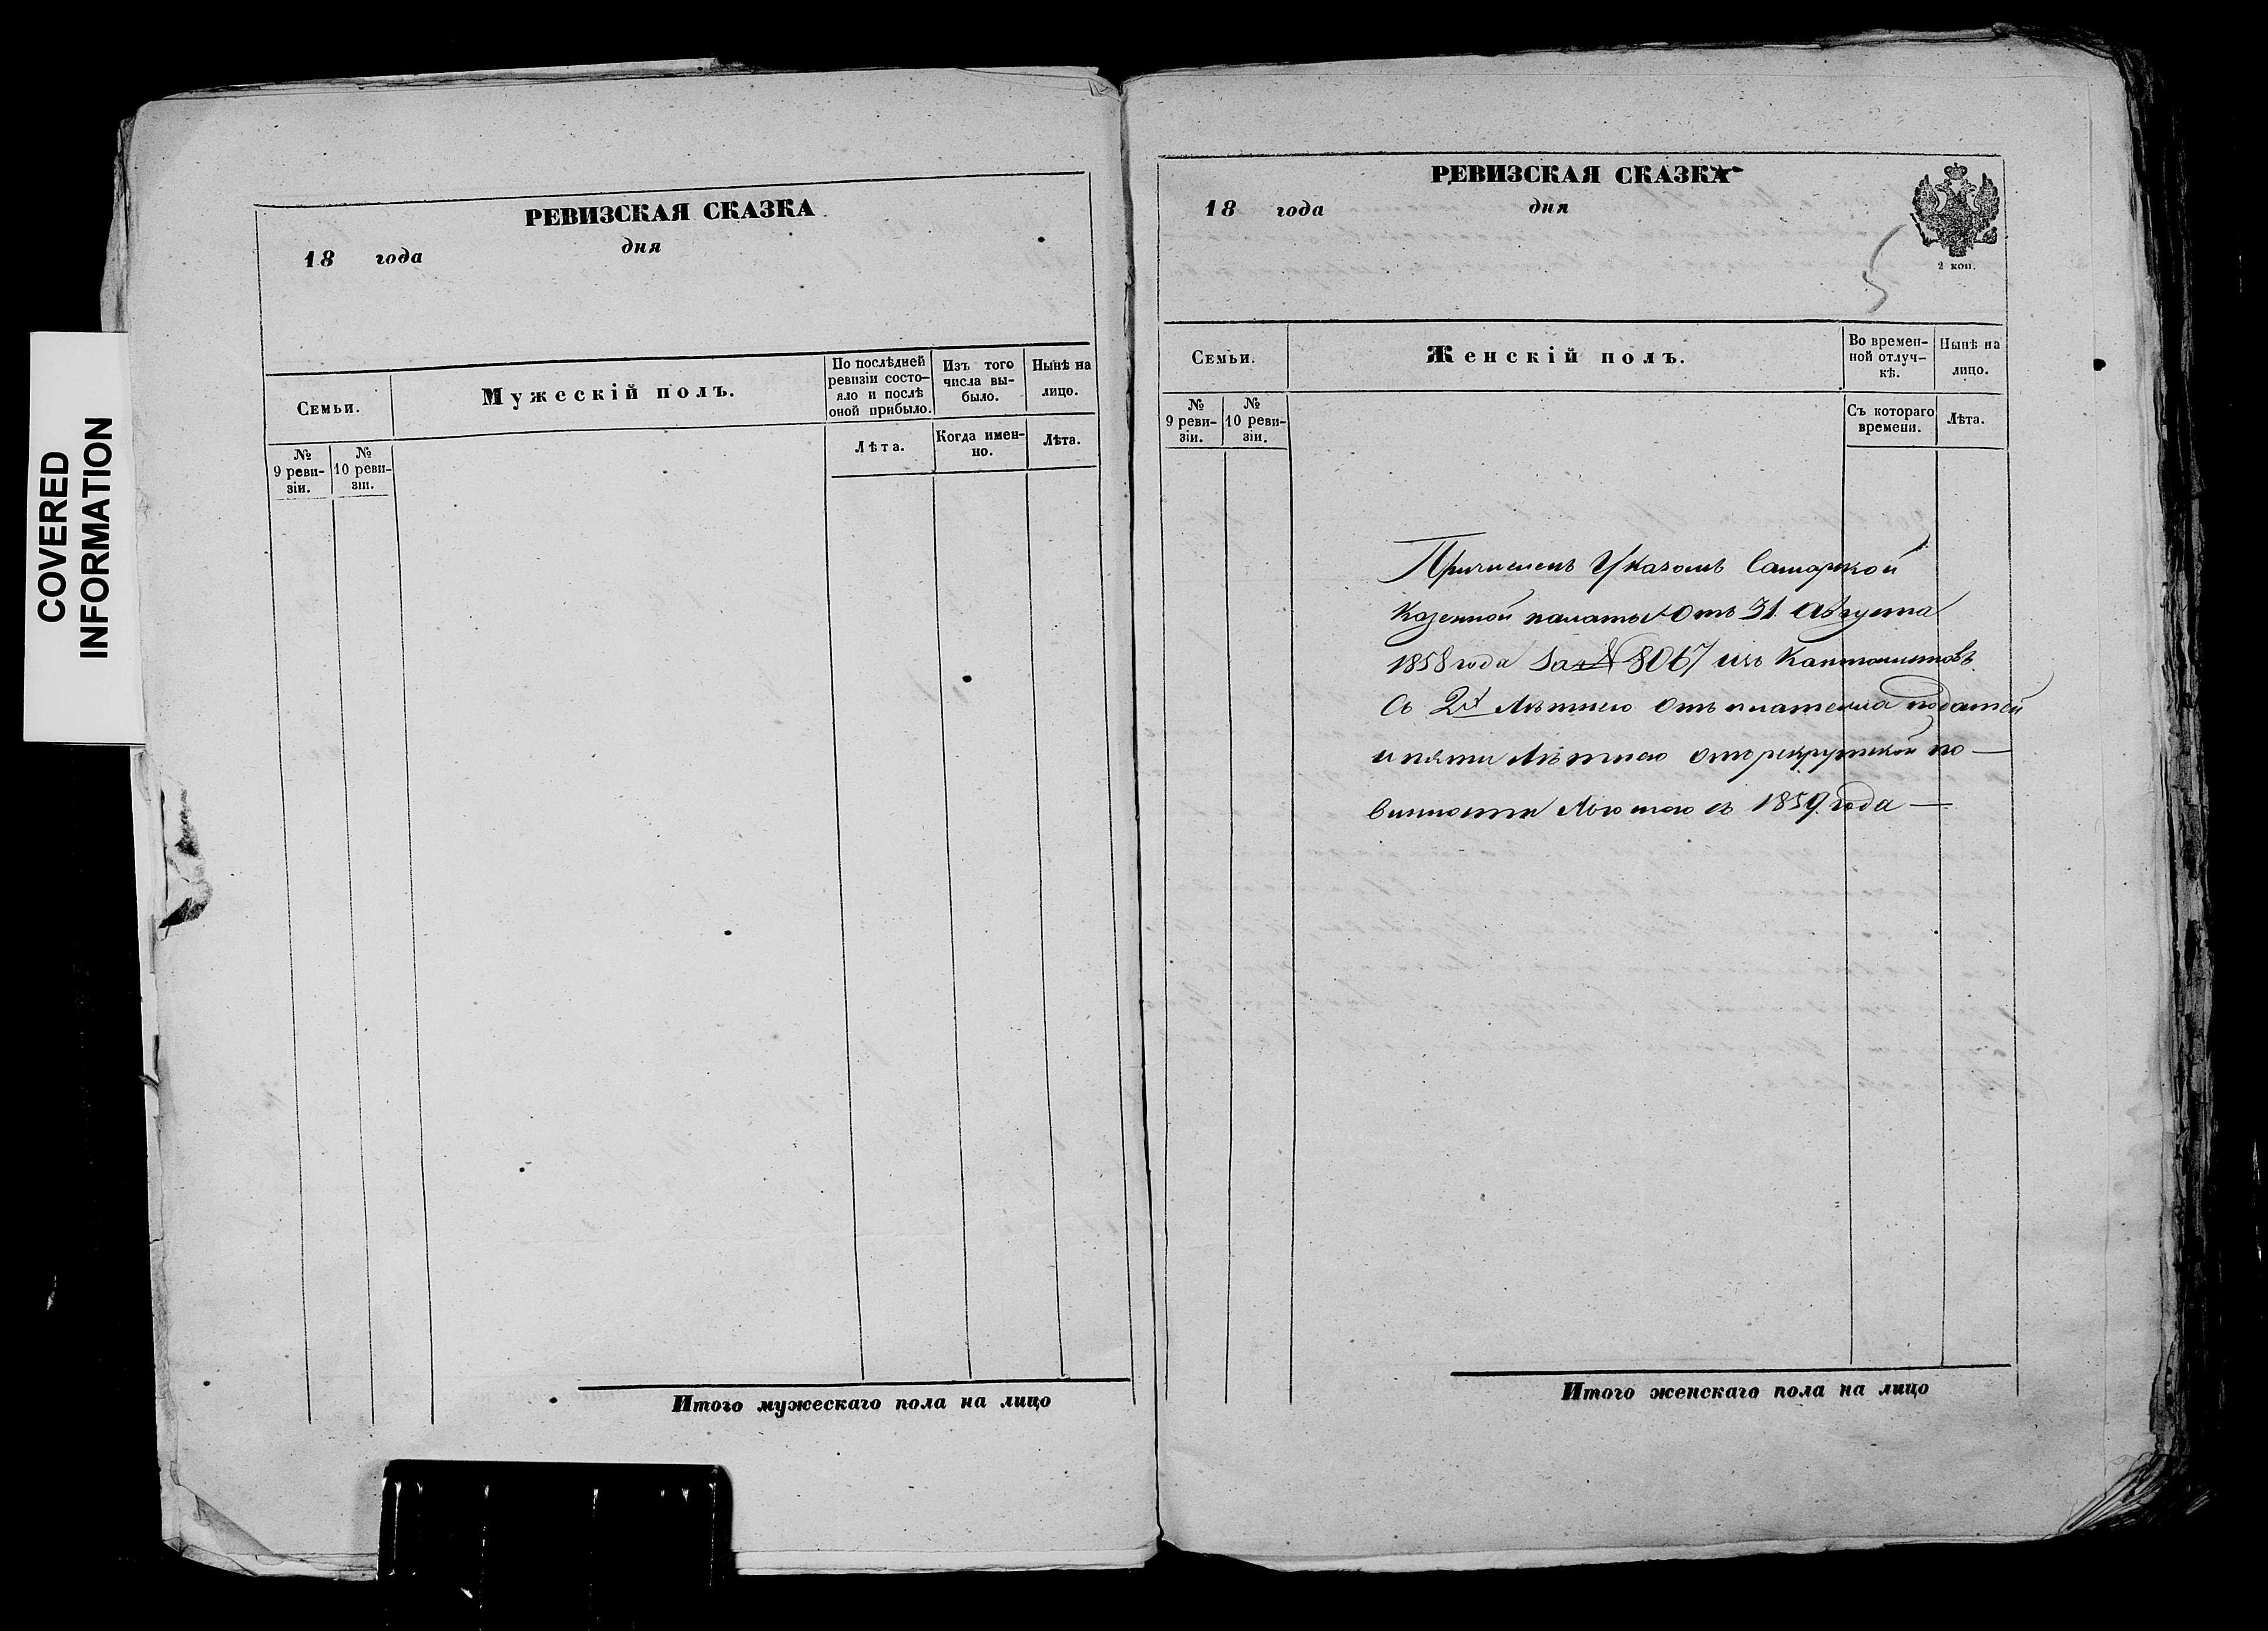 COVERED
INFORMATION
РЕВИЗСКАЯ СКАЗКА
18 года дня
Семьи.
Мужескій полъ.
По послѣдней
ревизіи состо-
яло и послѣ
оной прибыло.
Изъ того
числа вы-
было.
Нынѣ на
лицо.
№
9 реви-
зіи.
№
10 реви-
зіи.
Лѣта.
Когда имен-
но.
Лѣта.
Итого мужескаго пола на лицо
РЕВИЗСКАЯ СКАЗКА
18 года дня
2 коп.
5
Семьи.
Женскій полъ.
Во времен-
ной отлуч-
кѣ.
Нынѣ на
лицо.
№
9 реви-
зіи.
№
10 реви-
зіи.
Съ котораго
времени.
Лѣта.
Причисленъ Указомъ Самарской
Казенной палаты отъ 31. Августа
1858 года За № 8067 изъ Кантонистовъ
Съ 2х Лѣтнею отъ платежа податей
и пяти Лѣтнею отъ рекрутской по-
винности Льготою съ 1859. года —
Итого женскаго пола на лицо